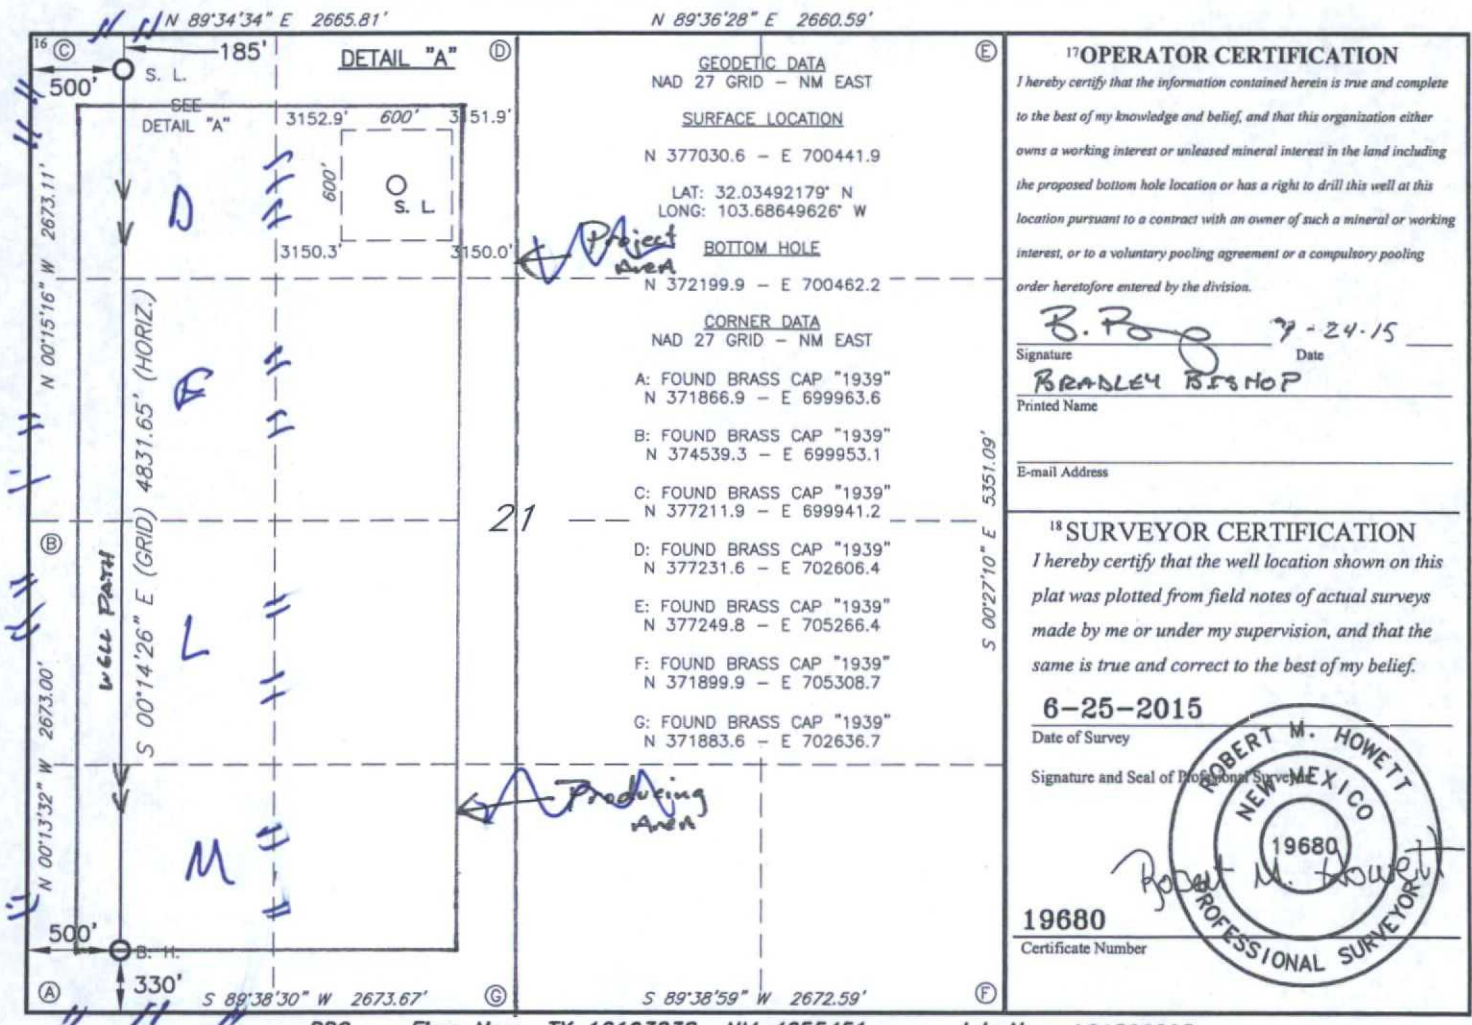 N 89°34'34" E 2665.81'
N 89°36'28" E 2660.59'
16
C
185'
500'
S. L.
SEE
DETAIL "A"
DETAIL "A"
D
3152.9' 600' 3151.9'
600'
S. L.
3150.3' 3150.0'
Project
Area
N 00°15'16" W 2673.11'
D
E
L
M
WELL PATH
S 00°14'26" E (GRID) 4831.65' (HORIZ.)
B
N 00°13'32" W 2673.00'
21
Producing
Area
500'
B. H.
330'
A
S 89°38'30" W 2673.67'
G
S 89°38'59" W 2672.59'
F
E
S 00°27'10" E 5351.09'
GEODETIC DATA
NAD 27 GRID – NM EAST
SURFACE LOCATION
N 377030.6 – E 700441.9
LAT: 32.03492179° N
LONG: 103.68649626° W
BOTTOM HOLE
N 372199.9 – E 700462.2
CORNER DATA
NAD 27 GRID – NM EAST
A: FOUND BRASS CAP "1939"
N 371866.9 – E 699963.6
B: FOUND BRASS CAP "1939"
N 374539.3 – E 699953.1
C: FOUND BRASS CAP "1939"
N 377211.9 – E 699941.2
D: FOUND BRASS CAP "1939"
N 377231.6 – E 702606.4
E: FOUND BRASS CAP "1939"
N 377249.8 – E 705266.4
F: FOUND BRASS CAP "1939"
N 371899.9 – E 705308.7
G: FOUND BRASS CAP "1939"
N 371883.6 – E 702636.7
17 OPERATOR CERTIFICATION
I hereby certify that the information contained herein is true and complete
to the best of my knowledge and belief, and that this organization either
owns a working interest or unleased mineral interest in the land including
the proposed bottom hole location or has a right to drill this well at this
location pursuant to a contract with an owner of such a mineral or working
interest, or to a voluntary pooling agreement or a compulsory pooling
order heretofore entered by the division.
-24-15
Signature Date
BRADLEY BISHOP
Printed Name
E-mail Address
18 SURVEYOR CERTIFICATION
I hereby certify that the well location shown on this
plat was plotted from field notes of actual surveys
made by me or under my supervision, and that the
same is true and correct to the best of my belief.
6-25-2015
Date of Survey
Signature and Seal of Professional Surveyor
ROBERT M. HOWETT
NEW MEXICO
19680
PROFESSIONAL SURVEYOR
Robert M. Howett
19680
Certificate Number